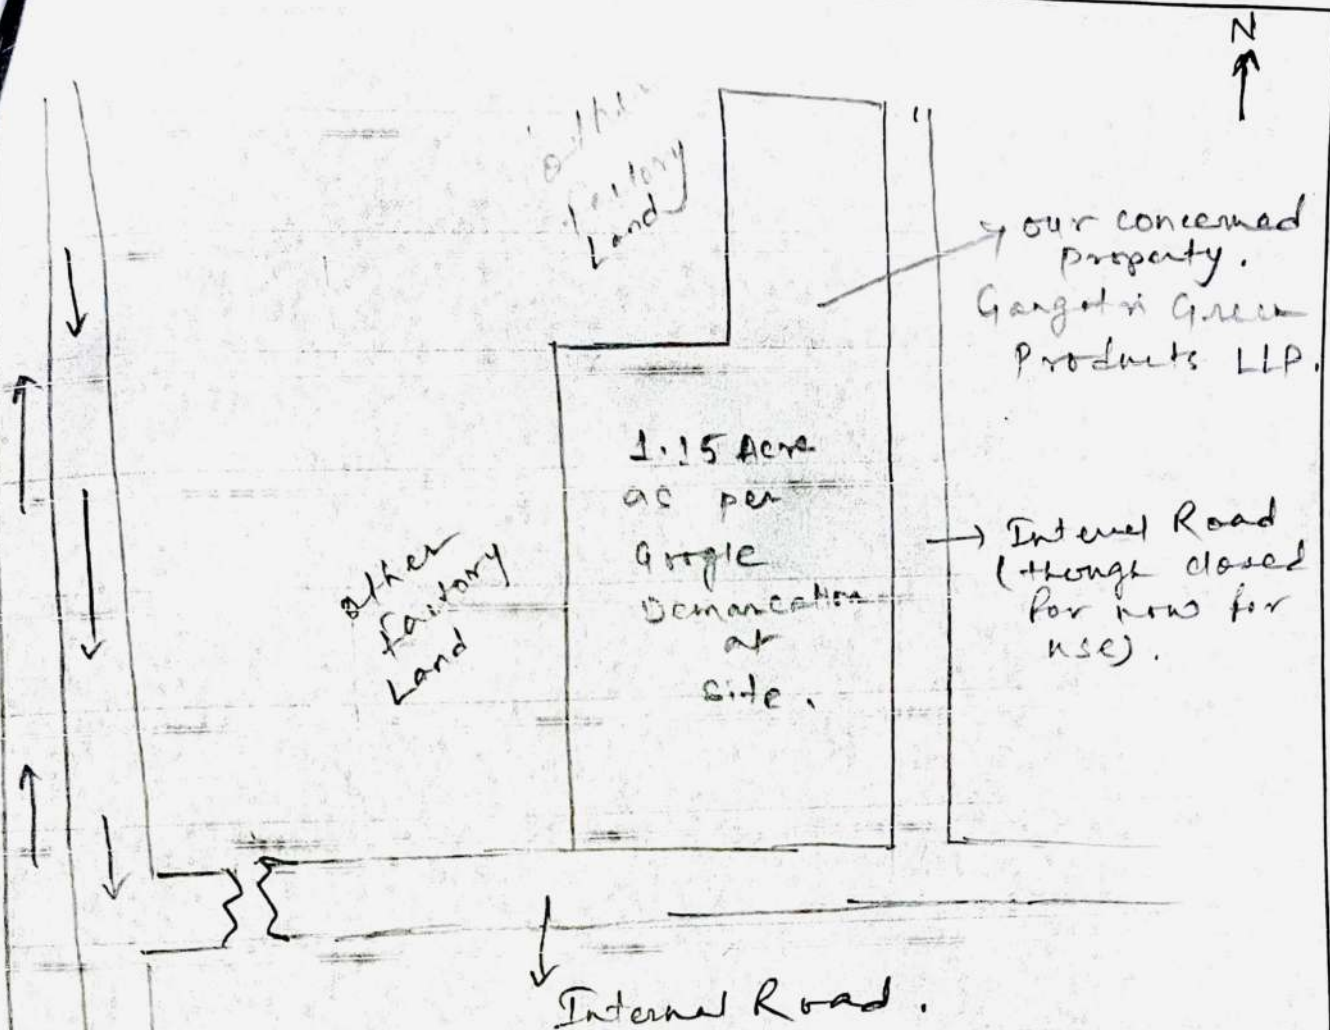 N
other
factory
Land
our concerned
property.
Gangotri Green
Products LLP.
1.15 Acre
as per
Google
Demarcation
at
Site.
other
factory
Land
Internal Road
(though closed
for now for
use).
Internal Road.